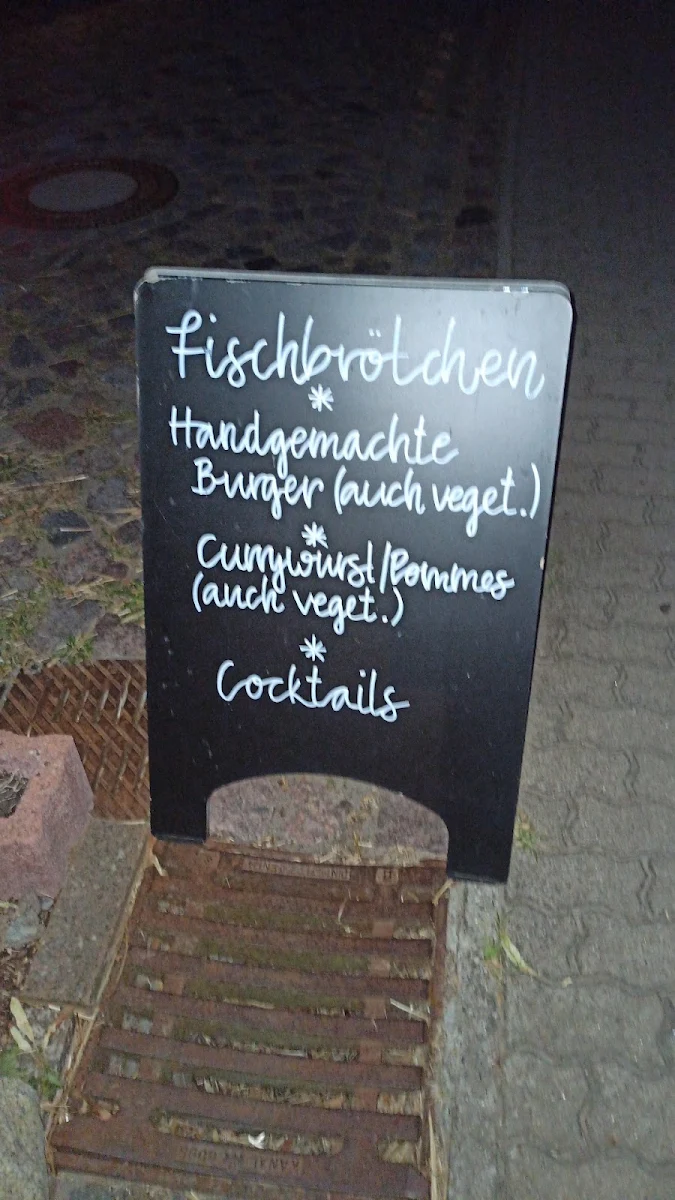 Fischbrötchen
*
Handgemachte
Burger (auch veget.)
*
Currywurst/Pommes
(auch veget.)
*
Cocktails